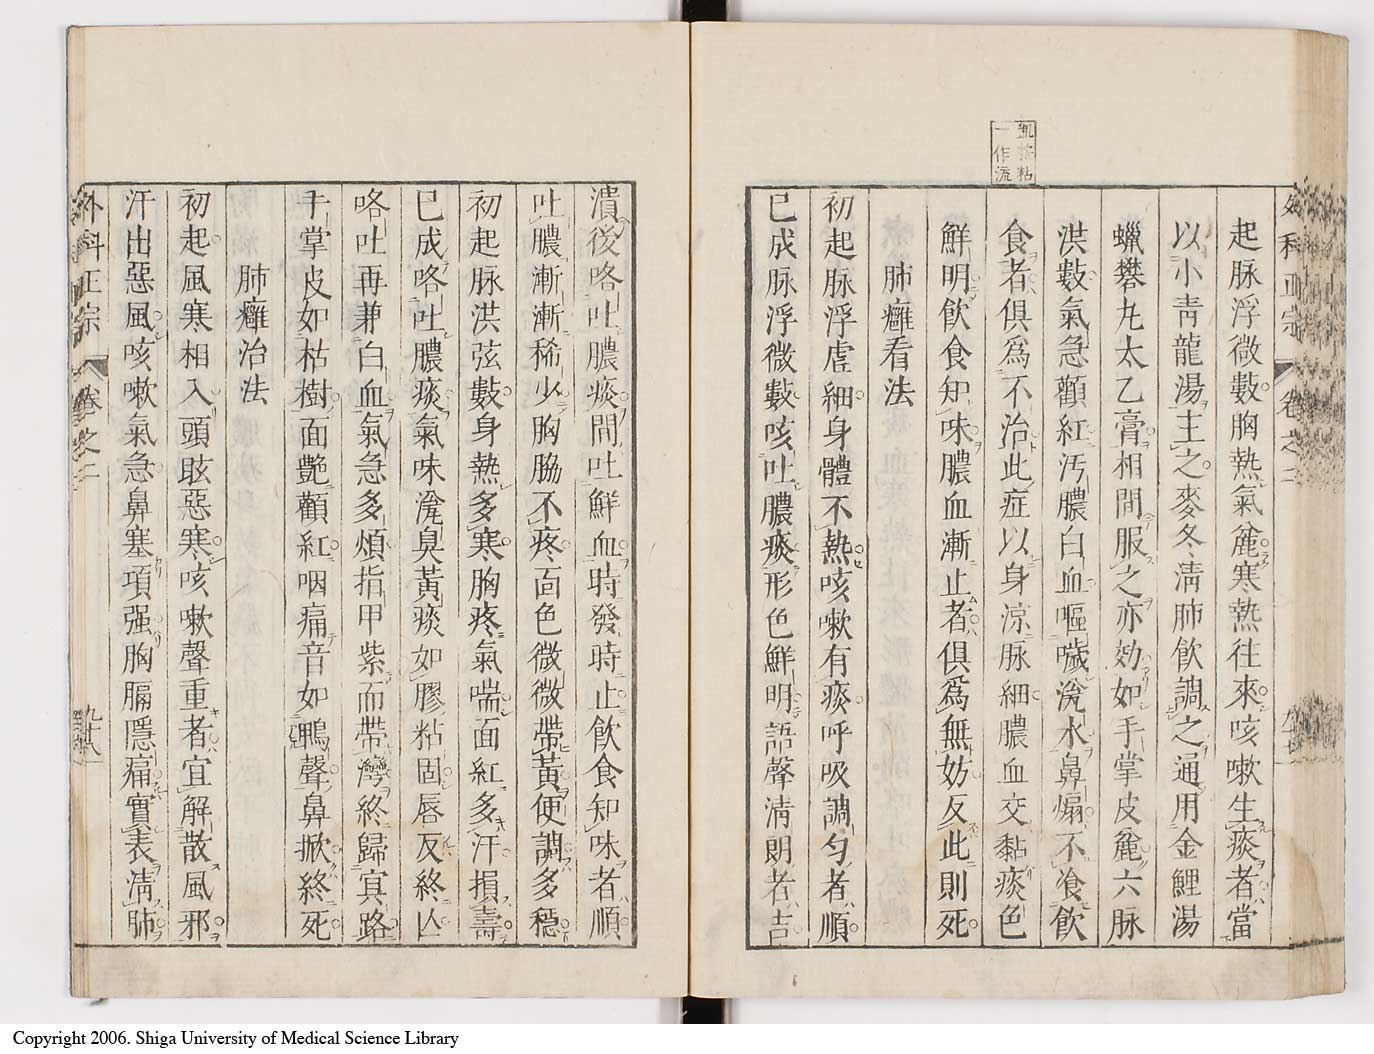 外科正宗 卷之二
凱按粘
一作流
起脉浮微數胸熱氣麄寒熱往來咳嗽生痰者當
以小靑龍湯主之麥冬淸肺飮調之通用金鯉湯
蠟礬丸太乙膏相間服之亦効如手掌皮麄六脉
洪數氣急顴紅汚膿白血嘔噦涗水鼻煽不飡飮
食者俱爲不治此症以身涼脉細膿血交黏痰色
鮮明飮食知味膿血漸止者俱爲無妨反此則死
肺癰看法
初起脉浮虛細身體不熱咳嗽有痰呼吸調勻者順
已成脉浮微數咳吐膿痰形色鮮明語聲淸朗者吉
潰後咯吐膿痰間吐鮮血時發時止飮食知味者順
吐膿漸漸稀少胸脇不疼面色微微帶黃便調多穩
初起脉洪弦數身熱多寒胸疼氣喘面紅多汗損壽
已成咯吐膿痰氣味涗臭黃痰如膠粘固唇反終凶
咯吐再兼白血氣急多煩指甲紫而帶灣終歸㝠路
手掌皮如枯樹面艷顴紅咽痛音如鴨聲鼻掀終死
肺癰治法
初起風寒相入頭眩惡寒咳嗽聲重者宜解散風邪
汗出惡風咳嗽氣急鼻塞項强胸膈隱痛實表淸肺
外科正宗 卷之二 九十八
Copyright 2006. Shiga University of Medical Science Library